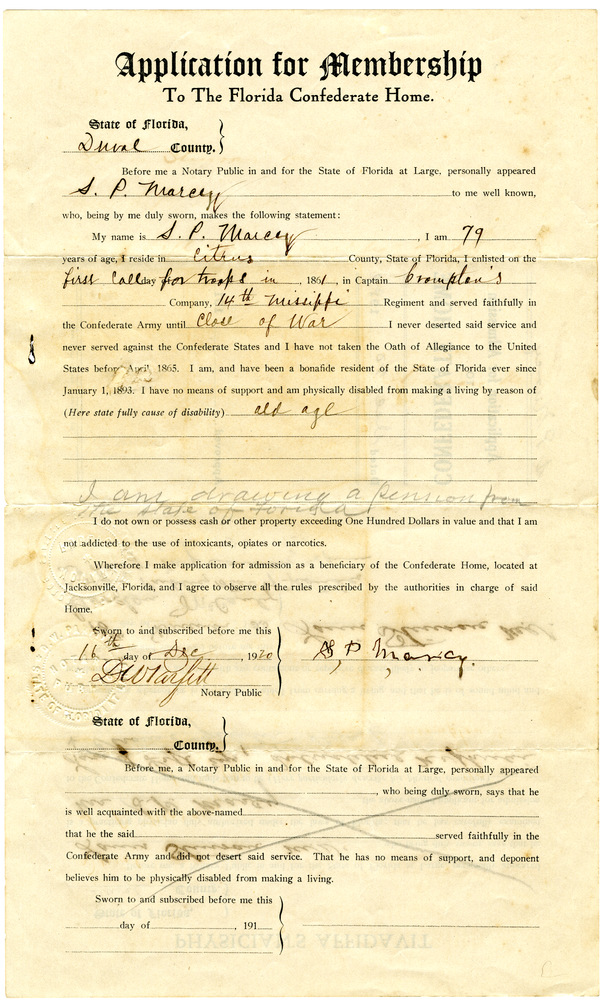 Application for Membership
To The Florida Confederate Home.
State of Florida,
Duval County.
Before me a Notary Public in and for the State of Florida at Large, personally appeared
S. P. Marcey to me well known,
who, being by me duly sworn, makes the following statement:
My name is S. P. Marcey , I am 79
years of age, I reside in Citrus County, State of Florida, I enlisted on the
first call day for troops in , 1861, in Captain Crompton's
Company, 14th Missippi Regiment and served faithfully in
the Confederate Army until Close of War I never deserted said service and
never served against the Confederate States and I have not taken the Oath of Allegiance to the United
States before April, 1865. I am, and have been a bonafide resident of the State of Florida ever since
January 1, 1893. I have no means of support and am physically disabled from making a living by reason of
(Here state fully cause of disability) old age
I am drawing a pension from
the State of Florida
I do not own or possess cash or other property exceeding One Hundred Dollars in value and that I am
not addicted to the use of intoxicants, opiates or narcotics.
Wherefore I make application for admission as a beneficiary of the Confederate Home, located at
Jacksonville, Florida, and I agree to observe all the rules prescribed by the authorities in charge of said
Home.
Sworn to and subscribed before me this
16th day of Dec , 1920
S, P, Marcy.
Notary Public
State of Florida,
County.
Before me, a Notary Public in and for the State of Florida at Large, personally appeared
, who being duly sworn, says that he
is well acquainted with the above-named
that he the said served faithfully in the
Confederate Army and did not desert said service. That he has no means of support, and deponent
believes him to be physically disabled from making a living.
Sworn to and subscribed before me this
day of , 191